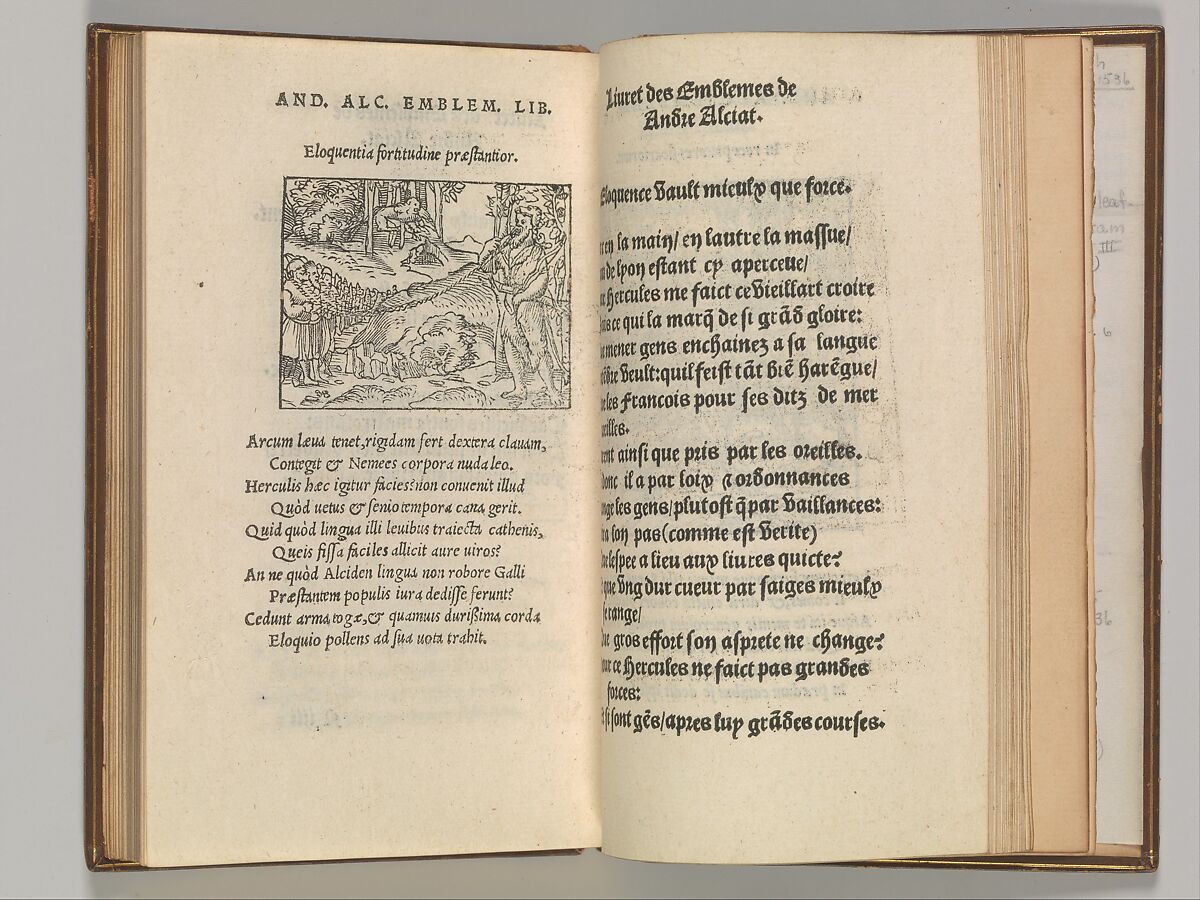 AND. ALC. EMBLEM. LIB.
Eloquentia fortitudine præstantior.
Arcum læua tenet, rigidam fert dextera clauam,
Contegit & Nemees corpora nuda leo.
Herculis hæc igitur facies? non conuenit illud
Quòd uetus & senio tempora cana gerit.
Quid quòd lingua illi leuibus traiecta cathenis,
Queis fissa faciles allicit aure uiros?
An ne quòd Alciden lingua non robore Galli
Præstantem populis iura dedisse ferunt?
Cedunt arma togæ, & quamuis durißima corda
Eloquio pollens ad sua uota trahit.
Liuret des Emblemes de
Andre Alciat.
Eloquence vault mieulx que force.
en la main/ en lautre la massue/
de lyon estant cy aperceue/
Hercules me faict ce vieillart croire
ce qui la marq̄ de si grād gloire:
mener gens enchainez a sa langue
veult: quil feist tāt biē harēgue/
les Francois pour ses ditz de mer
ueilles.
ainsi que pris par les oreilles.
donc il a par loix & ordonnances
les gens/ plutost q̄ par vaillances:
lon pas (comme est verite)
lespee a lieu aux liures quicte?
que vng dur cueur par saiges mieulx
se range/
gros effort son asprete ne change?
ce Hercules ne faict pas grandes
forces:
si sont gēs/ apres luy grādes courses.
1536
leaf
III
6
36